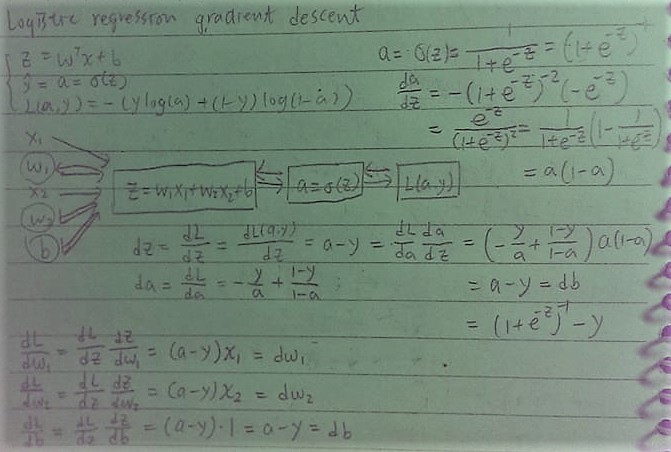 Logistic regression gradient descent
z = wᵀx + b
ŷ = a = σ(z)
L(a,y) = -(y log(a) + (1-y) log(1-a))
a = σ(z) = 1/(1+e^-z) = (1+e^-z)^-1
da/dz = -(1+e^-z)^-2 (-e^-z)
= e^-z/(1+e^-z)^2 = 1/(1+e^-z) (1 - 1/(1+e^-z))
= a(1-a)
x₁
w₁
x₂
w₂
b
z = w₁x₁+w₂x₂+b
a = σ(z)
L(a,y)
dz = dL/dz = dL(a,y)/dz = a-y = dL/da da/dz = (-y/a + (1-y)/(1-a)) a(1-a)
da = dL/da = -y/a + (1-y)/(1-a) ;
= a-y = db
= (1+e^-z)^-1 - y
dL/dw₁ = dL/dz dz/dw₁ = (a-y)x₁ = dw₁
dL/dw₂ = dL/dz dz/dw₂ = (a-y)x₂ = dw₂
dL/db = dL/dz dz/db = (a-y)·1 = a-y = db